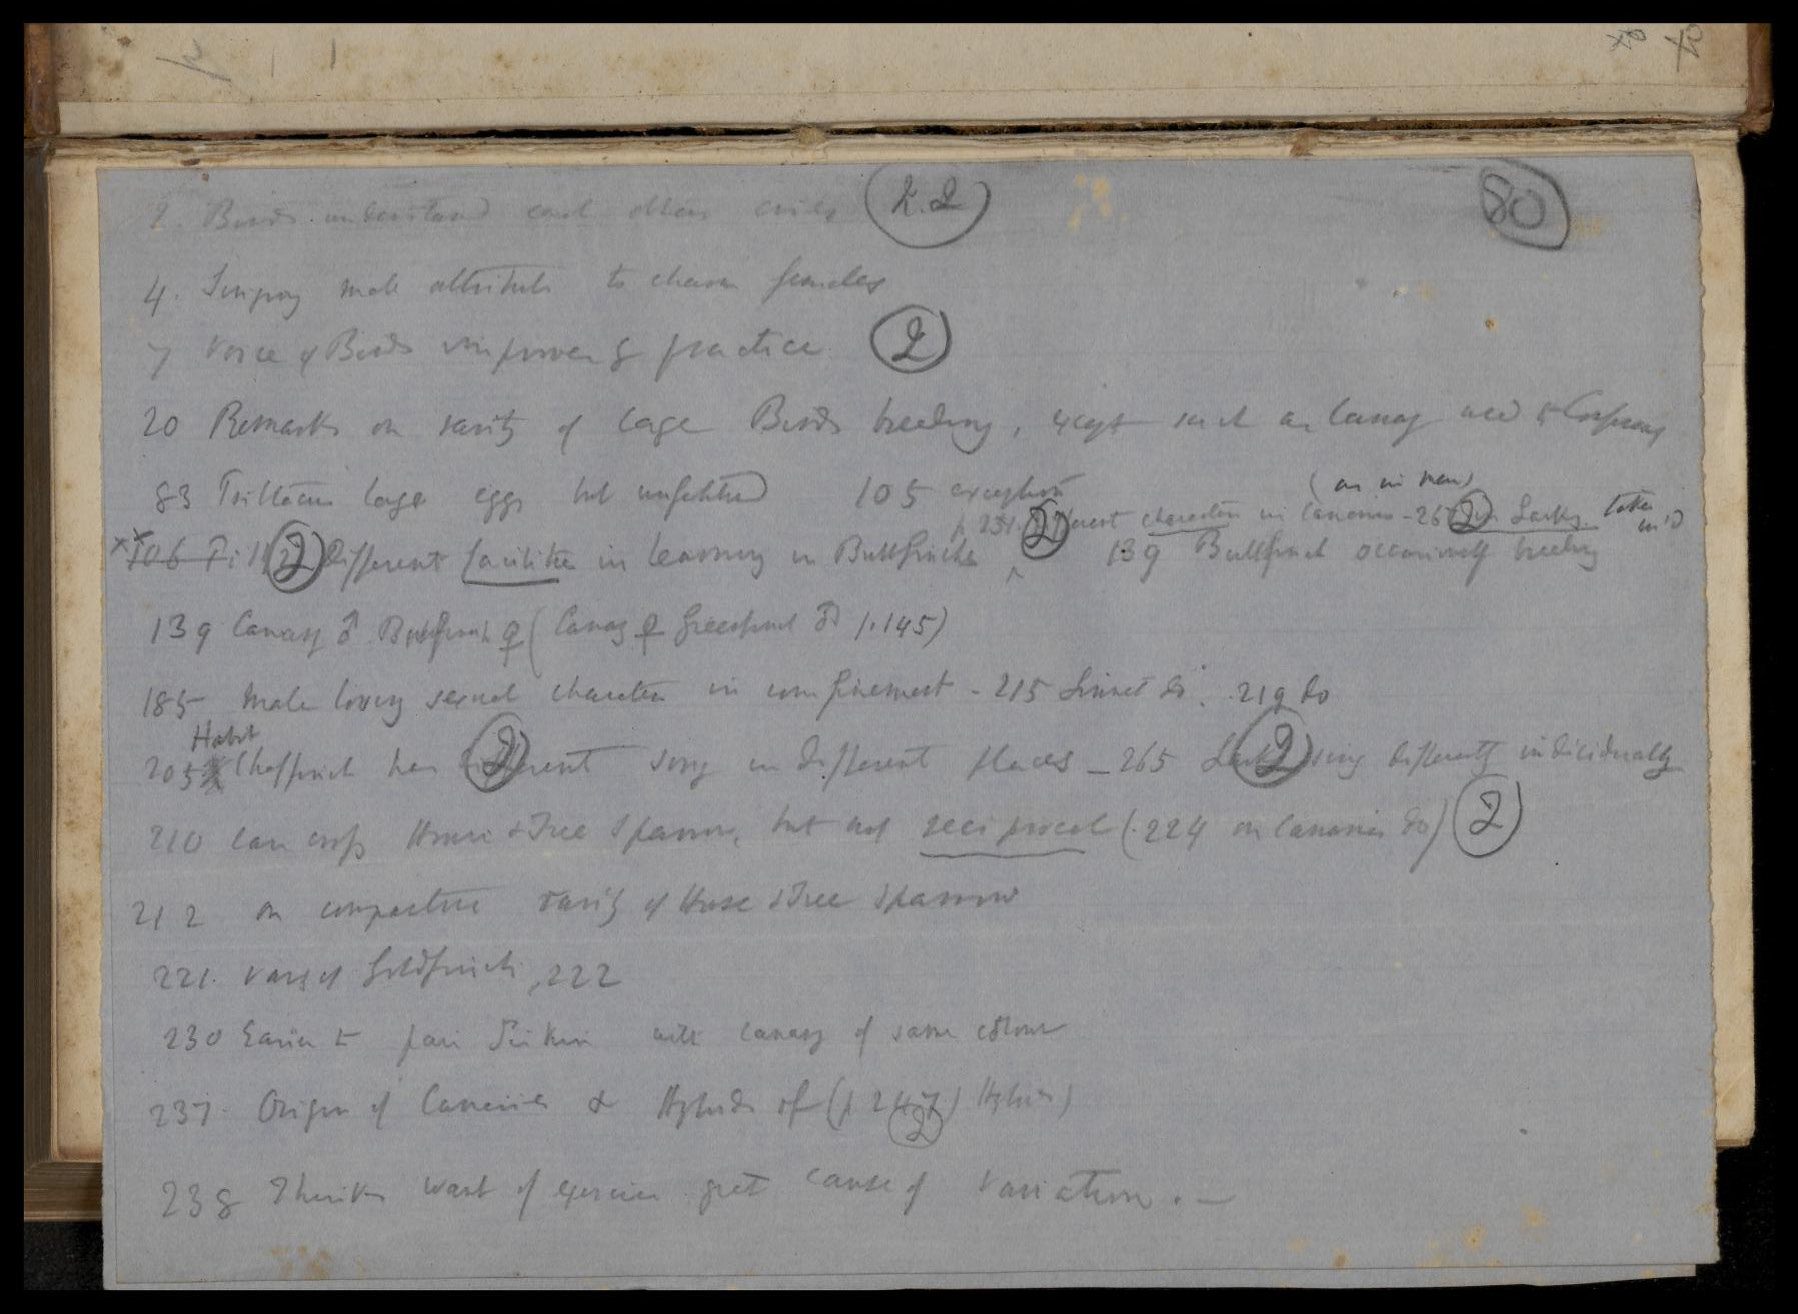 2. Birds understand each others cries (2.2) 80
4. Singing male attribute to charm females
7 Voice of Birds improves by practice (2)
20 Remarks on rarity of Cage Birds breeding, except such as Canary
83 Psittacus lays eggs but unfertilised 105 exception
(as in man)
p 231. different character in canaries - 267 in Larks
106 (2) Different facilities in learning in Bullfinches 139 Bullfinch occasionally breeding
139 Canary ♂ Bullfinch ♀ (Canary ♀ Greenfinch ♂ p.145)
185 Male losing sexual character in confinement - 215 Linnet do. 219 do
Habit
205 Chaffinch has different song in different places - 265 Larks sing differently individually
210 Can cross House & Tree Sparrow, but not reciprocal (224 on Canaries do) (2)
212 on comparative rarity of House & Tree Sparrow
221. Vars of Goldfinch, 222
230 Easier to pair Siskin with canary of same colour
237. Origin of Canaries & Hybrids of (p 247) Hybrids)
(2)
238 Thinks want of exercise great cause of Variation. —